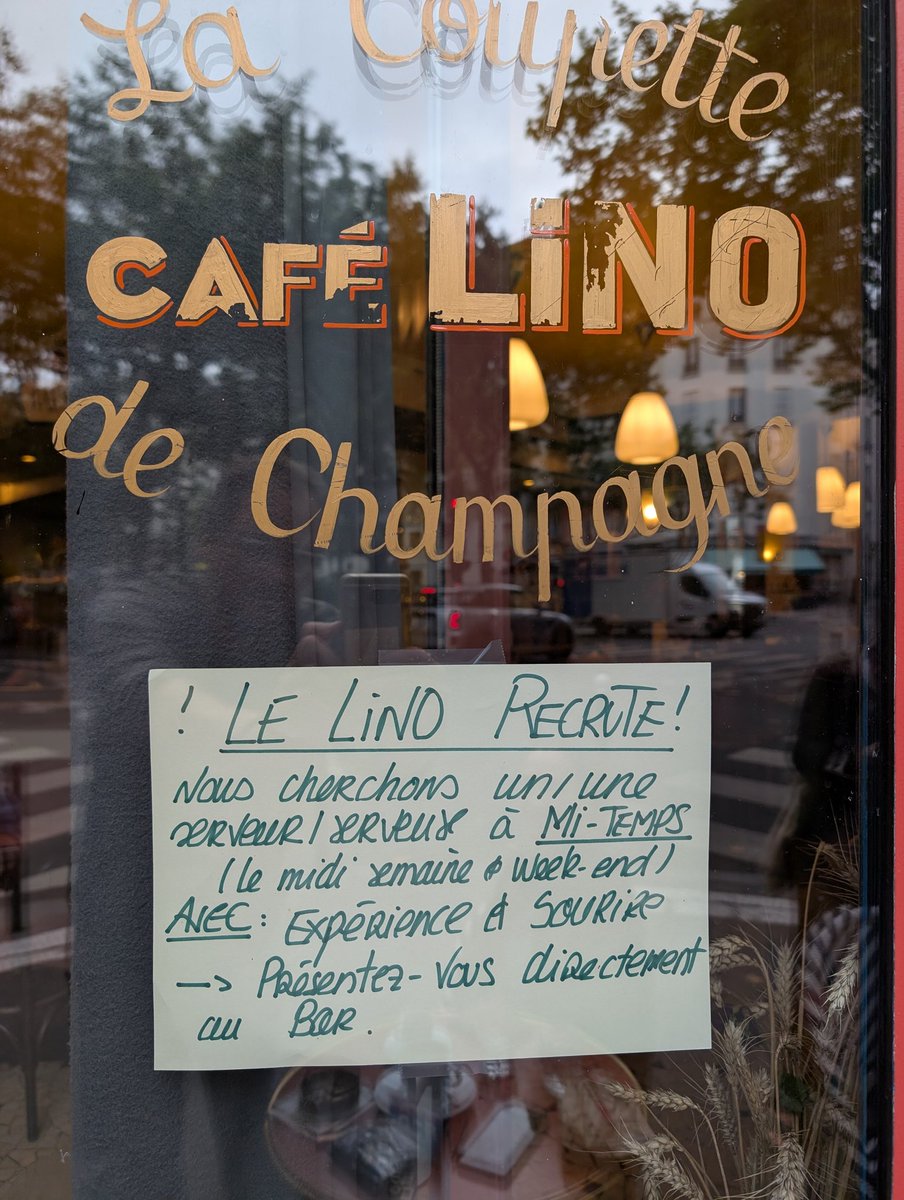 La Coupette
CAFÉ LiNO
de Champagne
! LE LiNO RECRUTE !
Nous cherchons un/une
serveur/serveuse à Mi-TEMPS
(le midi semaine & week-end)
AVEC : EXPÉRIENCE & SOURIRE
-> Présentez-vous directement
au Bar.